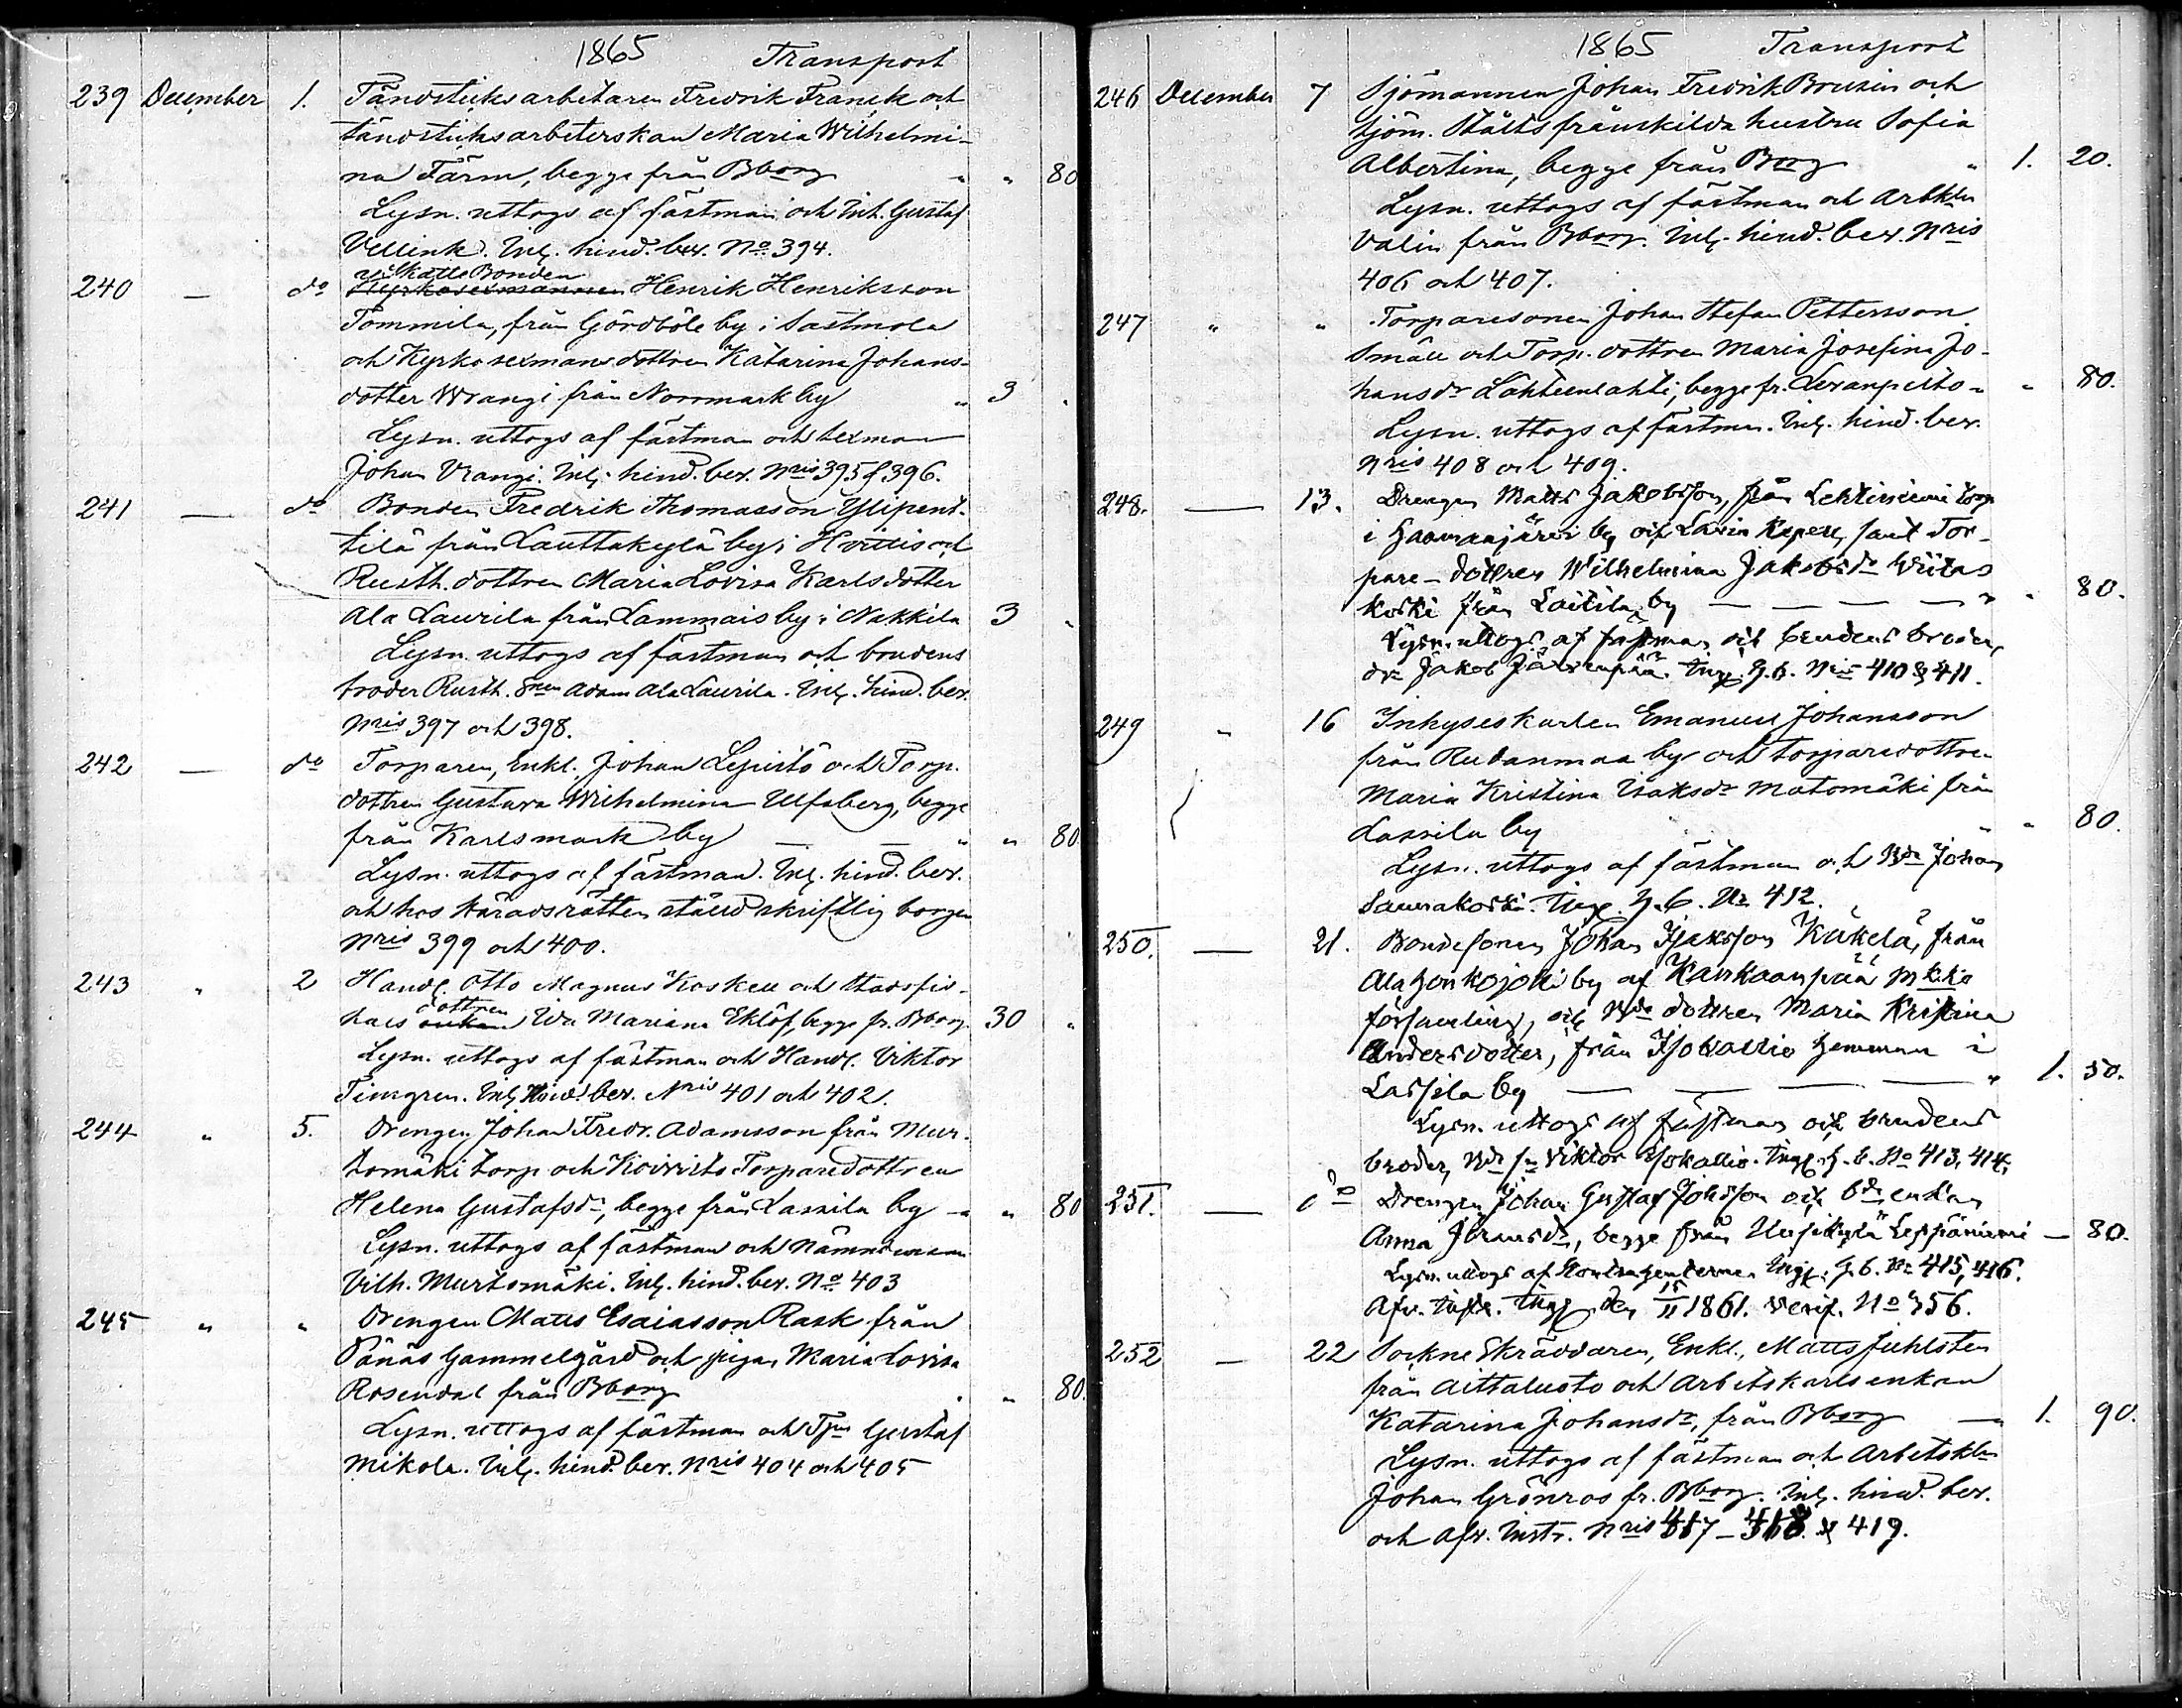 1865 Transport
239 December 1. Tändsticksarbetaren Fredrik Franck och
tändsticksarbeterskan Maria Wilhelmi-
na Färm, begge från Bborg " " 80
Lysn. uttogs af fästman och Inh. Gustaf
Vellink. Inl. hind. bev. No. 394.
Skatte Bonden
240 — do Kyrkosexmannen Henrik Henriksson
Tommila, från Gördböle by i Sastmola
och Kyrkosexmansdottren Katarina Johans-
dotter Wrangi från Norrmark by " 3 "
Lysn. uttogs af fästman och sexman
Johan Vrangi. Inl. hind. bev. Nris 395 & 396.
241 — do Bonden Fredrik Thomasson Ylipent-
tilä från Lauttakylä by i Hvittis och
Rusth. dottren Maria Lovisa Karlsdotter
Ala Laurila från Lammais by i Nakkila 3 "
Lysn. uttogs af fästman och brudens
broder Rusth. Snen Adam Ala Laurila. Inl. hind. bev.
Nris 397 och 398.
242 — do Torparen, Enkl. Johan Lepistö och Torp.
dottren Gustava Wilhelmina Ulfsberg, begge
från Karlsmark by — — " " 80
Lysn. uttogs af fästman. Inl. hind. bev.
och hos Häradsrätten ställd skriftlig borgen
Nris 399 och 400.
243 " 2 Handl. Otto Magnus Koskell och Stadsfis-
dottren
kals enkan Ida Mariana Eklöf, begge fr. Bborg. 30 "
Lysn. uttogs af fästman och Handl. Viktor
Timgren. Inl. Hind. bev. Nris 401 och 402.
244 " 5. Drengen Johan Fredr. Adamsson från Mur-
tomäki torp och Koivisto Torparedottren
Helena Gustafsdr, begge från Lassila by — " 80
Lysn. uttogs af fästman och Nämndeman
Vilh. Murtomäki. Inl. hind. bev. No. 403
245 " " Drengen Matts Esaiasson Rask från
Pänäs Gammelgård och pigan Maria Lovisa
Rosendal från Bborg " " 80.
Lysn. uttogs af fästman och Gustaf
Mikola. Inl. hind. bev. Nris 404 och 405
1865 Transport
246 December 7 Sjömannen Johan Fredrik Brusin och
sjöm. Ståhls frånskilda hustru Sofia
Albertina, begge från Bborg " 1. 20.
Lysn. uttogs af fästman och Arbkln
Valin från Bborg. Inl. hind. bev. Nris
406 och 407.
247 " " Torparesonen Johan Stefan Pettersson
Småll och Torp. dottren Maria Josefina Jo-
hansdr Lähteenlahti, begge fr. Levanpelto " " 80.
Lysn. uttogs af fästman. Inl. hind. bev.
Nris 408 och 409.
248. — 13. Drengen Matts Jakobsson, från Lehtiniemi torp
i Harmaajärvi by och Lavia Kapell, samt Tor-
pare-dottren Wilhelmina Jakobsdr Wiitas
koski från Laitila by — — — " " 80.
Lysn. uttogs af fästman och brudens broder,
dr. Jakob Järvenpää. Ingl. H. b. Nris 410 & 411.
249 " 16 Inhyseskarlen Emanuel Johansson
från Rudanmaa by och torparedottren
Maria Kristina Isaksdr Matomäki från
Lassila by " " 80.
Lysn. uttogs af fästman och Bde Johan
Saunakoski. Ingl. H. b. No 412.
250. — 21. Bondesonen Johan Isaksson Käkelä, från
Ala Honkojoki by af Kankaanpää Mkko
församling, och Bde dottren Maria Kristina
Andersdotter, från Isokallio hemman i
Lassila by — — — — " 1. 50.
Lysn. uttogs af fästman och brudens
broder, Bde sn Viktor Isokallio. Ingl. H. b. No 413, 414.
251. — do Drengen Johan Gustaf Johsson och bdeenkan
Anna Johansdr, begge från Uusikylä Leppäniemi — 80.
Lysn. uttogs af Kontrahenterne. Ingl. H. b. No 415, 416.
Afv. Instr. Ingl. den 15/11 1861. Verif. No 356.
252 — 22 SockneSkräddaren, Enkl., Matts Juhlsten
från Aittaluoto och Arbetskarlsenkan
Katarina Johansdr, från Bborg — 1. 90.
Lysn. uttogs af fästman och Arbetskln
Johan Grönroos fr. Bborg. Inl. hind. bev.
och Afv. Instr. Nris 417 – 418 & 419.